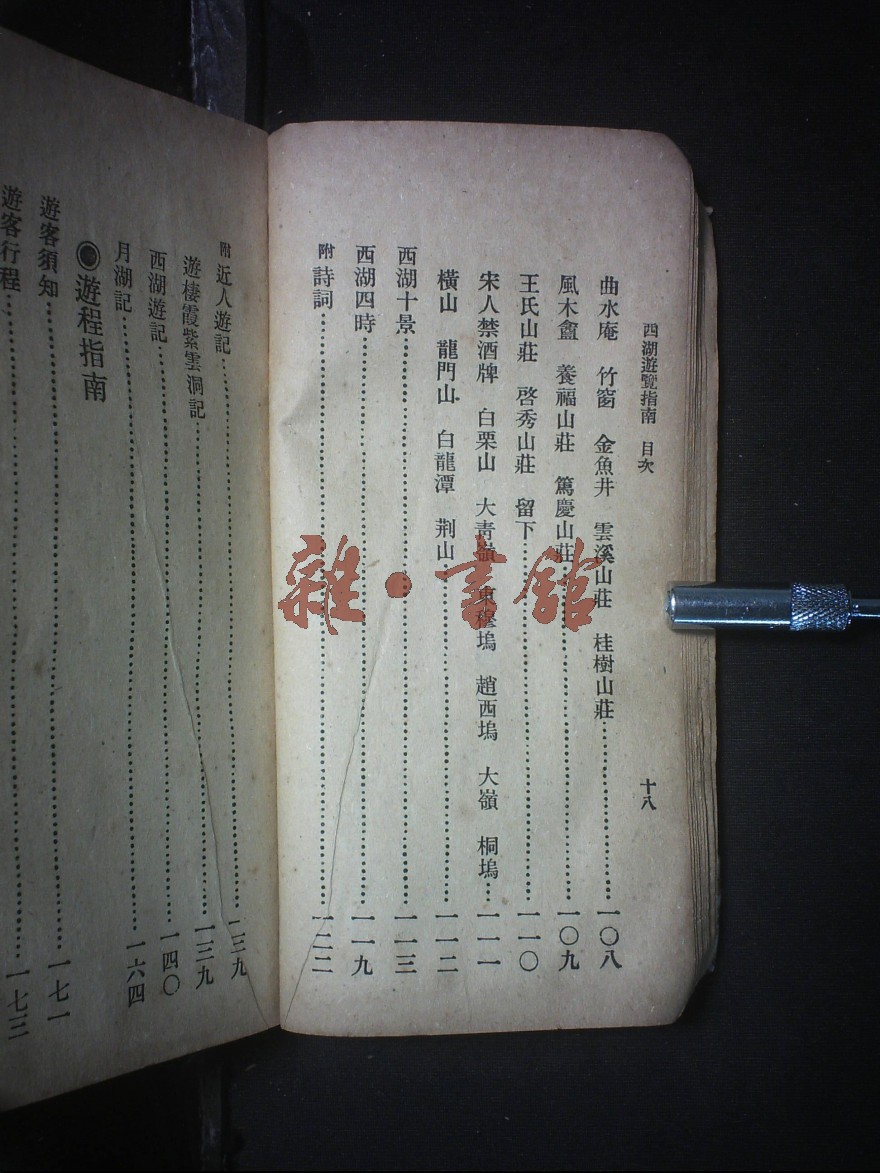 西湖遊覽指南 目次 十八
曲水庵 竹窗 金魚井 雲溪山莊 桂樹山莊……一〇八
風木盦 養福山莊 篤慶山莊……一〇九
王氏山莊 啓秀山莊 留下……一一〇
宋人禁酒牌 白栗山 大青嶺 東穆塢 趙西塢 大嶺 桐塢…一一一
橫山 龍門山 白龍潭 荆山……一一二
西湖十景……一一三
西湖四時……一一九
附 詩詞……一二二
附 近人遊記……一三九
遊棲霞紫雲洞記……一三九
西湖遊記……一四〇
月湖記……一六四
◉遊程指南
遊客須知……一七一
遊客行程……一七三
雜·書館